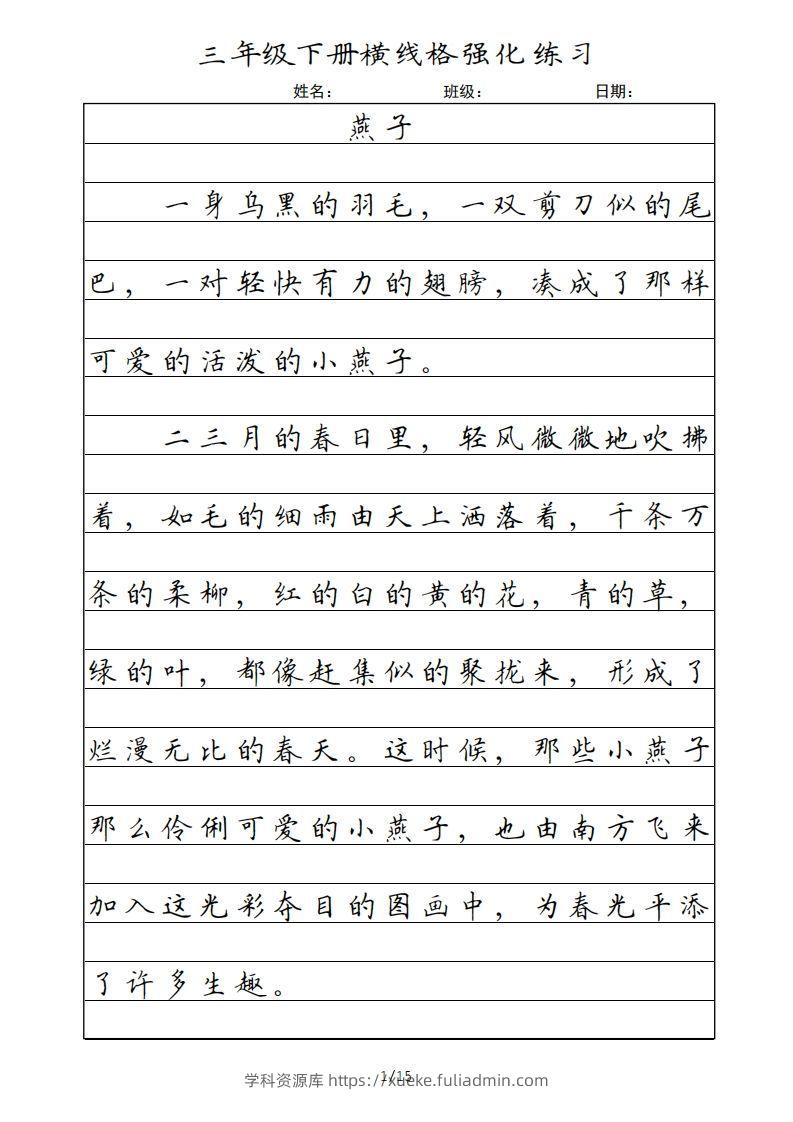 三年级下册横线格强化练习
姓名： 班级： 日期：
燕子
一身乌黑的羽毛，一双剪刀似的尾
巴，一对轻快有力的翅膀，凑成了那样
可爱的活泼的小燕子。
二三月的春日里，轻风微微地吹拂
着，如毛的细雨由天上洒落着，千条万
条的柔柳，红的白的黄的花，青的草，
绿的叶，都像赶集似的聚拢来，形成了
烂漫无比的春天。这时候，那些小燕子
那么伶俐可爱的小燕子，也由南方飞来
加入这光彩夺目的图画中，为春光平添
了许多生趣。
1/15
学科资源库 https://xueke.fuliadmin.com